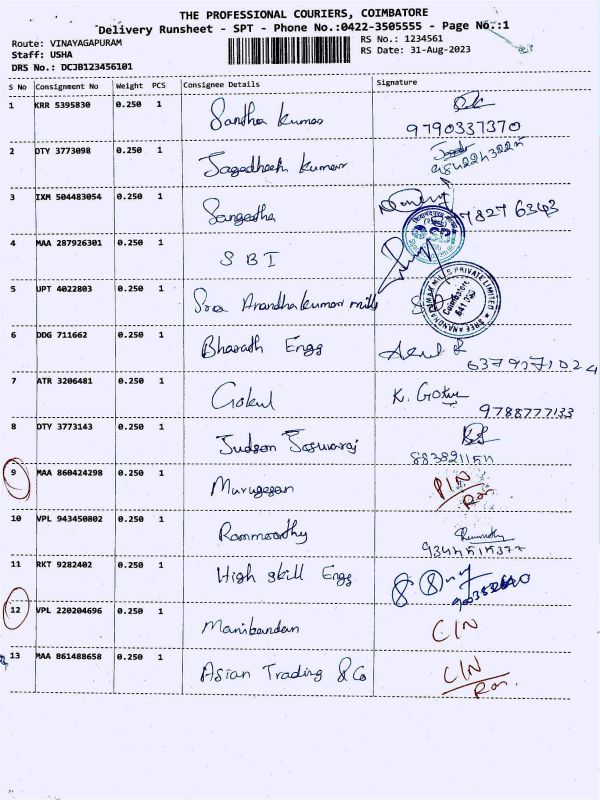 THE PROFESSIONAL COURIERS, COIMBATORE
Delivery Runsheet - SPT - Phone No.:0422-3505555 - Page No.:1
Route: VINAYAGAPURAM
RS No.: 1234561
Staff: USHA
RS Date: 31-Aug-2023
DRS No.: DCJB123456101
S No Consignment No Weight PCS Consignee Details Signature
1 KRR 5395830 0.250 1 Santha Kumar
9790337370
2 DTY 3773098 0.250 1 Jagadhesh Kumar
3 IXM 504483054 0.250 1 Sangeetha
4 MAA 287926301 0.250 1 SBI
5 UPT 4022803 0.250 1 Sree Anandhakumar mills
SREE ANANDHAKUMAR MILLS PRIVATE LIMITED
Coimbatore
6 DDG 711662 0.250 1 Bharath Engg
7 ATR 3206481 0.250 1 Gokul K. Gokul
9788777133
8 DTY 3773143 0.250 1 Judson
9 MAA 860424298 0.250 1 Murugesan
10 VPL 943450802 0.250 1 Rammoorthy
11 RKT 9282402 0.250 1 High skill Engg
12 VPL 220204696 0.250 1 Manibandan CIN
13 MAA 861488658 0.250 1 Asian Trading & Co CIN